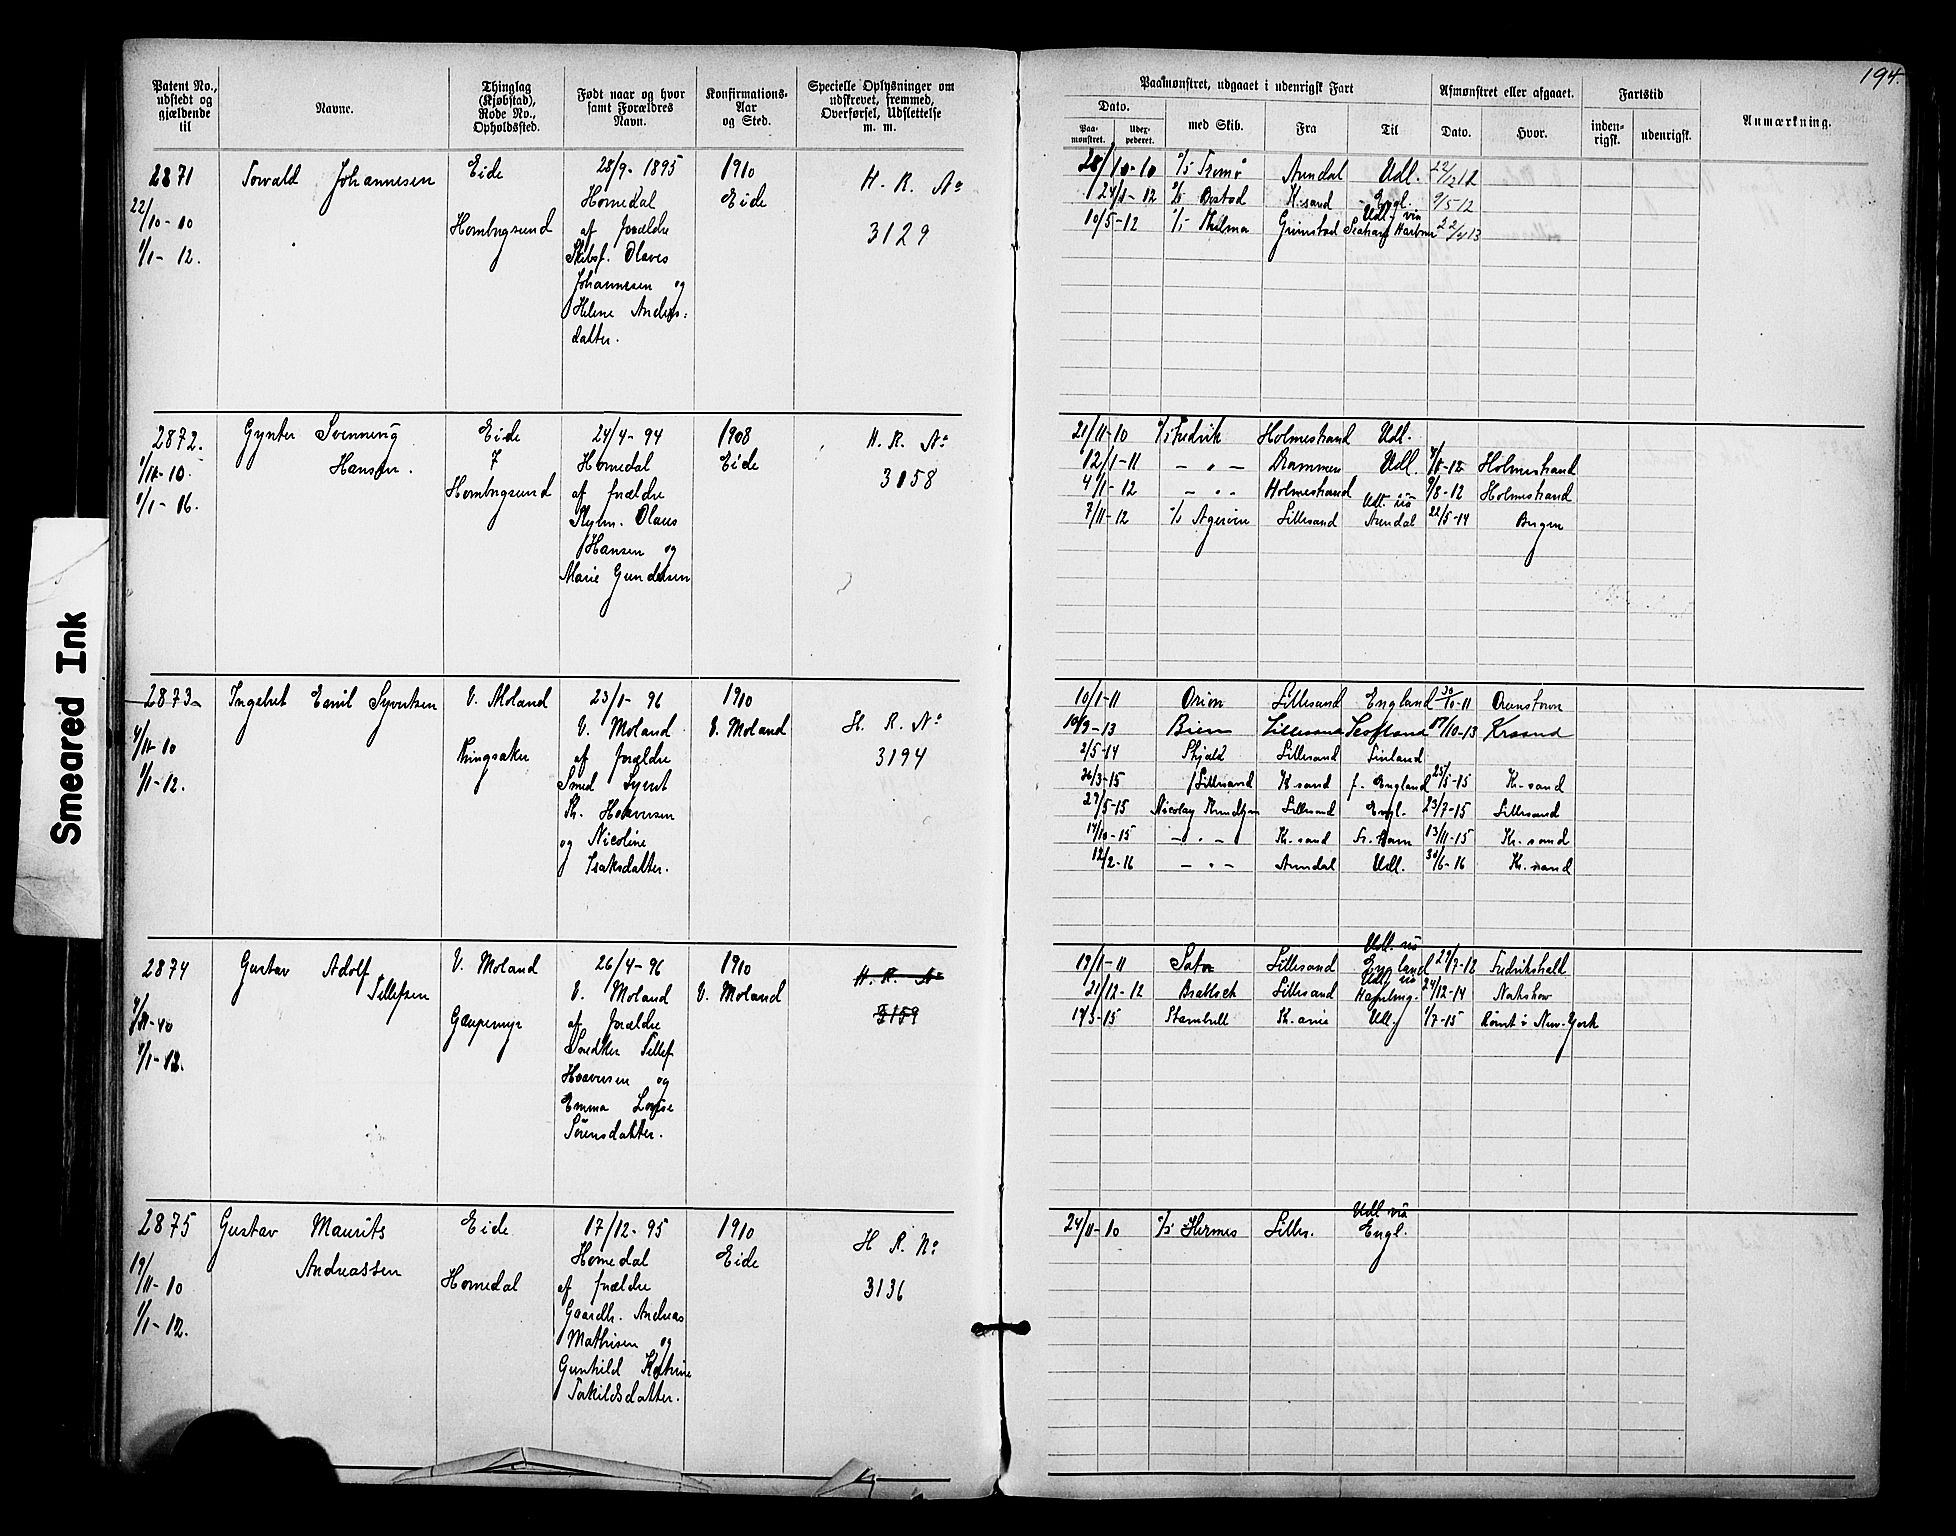 194.
Patent No., udstedt og gjældende til
Navne.
Thinglag (Kjøbstad), Rode No., Opholdssted.
Født naar og hvor samt Forældres Navn.
Konfirmations-Aar og Sted.
Specielle Oplysninger om udskrevet, fremmed, Overførsel, Udslettelse m. m.
Paamønstret, udgaaet i udenrigsk Fart
Dato.
Paamønstret.
Udexpederet.
med Skib.
Fra
Til
Afmønstret eller afgaaet.
Dato.
Hvor.
Fartstid
indenrigsk.
udenrigsk.
Anmærkning.
2871
22/10-10
1/1-12.
Torvald Johannesen
Eide
Hombugsund
28/9-1895
Homedal
af forældre
Skibsf. Olaves
Johannesen og
Helene Anders=
datter.
1910
Eide
H. R. No
3129
28/10-10 Tromø Arendal Udl. 22/12 12
24/1-12 K.sand Engl. 9/5-12
10/5-12 Thelma Grimstad Udl. via Harbour 22/4 13
2872.
1/11-10.
1/1-16.
Gynter Svenning
Hansen.
Eide
7
Hombugsund
24/4-94
Homedal
af forældre
Olaus
Hansen og
Marie Gundersen
1908
Eide
H. R. No
3158
21/11-10 Fredrik Holmestrand Udl.
12/1-11 - " - Drammen Udl. Holmestrand
4/1-12 - " - Holmestrand 9/8-12 Holmestrand
7/11-12 Lillesand Udl. via Arendal 22/5-14 Bergen
2873
4/11-10
1/1-12.
Ingebret Emil Syvertsen
V. Moland
Tingsaker
23/1-96
V. Moland
af forældre
Smed Syvert
Th. Haavorsen
og Nicoline
Isaksdatter.
1910
V. Moland
H. R. No
3194
10/1-11 Orion Lillesand England 30/10-11
10/9-13 Bien Lillesand Scotland 17/10-13 Krsand
2/5-14 Skjald Lillesand Finland
26/3-15 Lillesand K sand f. England 25/5-15 Kr. sand
27/5-15 Nicolay Knudtzon Lillesand Engl. 23/7-15 Lillesand
14/10-15 - " - Kr. sand 13/11-15 Kr. sand
12/2-16 - " - Arendal Udl. 30/6-16 Kr. sand
2874
1/1-12.
Gustav Adolf
Tellefsen
V. Moland
Gaupemyr
26/4-96
V. Moland
af forældre
Tellef
Haavorsen og
Emma Lovise
Sörensdatter.
1910
V. Moland
H. R. No
3159
19/1-11 Lillesand Udl. via England 29/7-12 Fredrikshald
21/12-12 Lillesand Udl. via Hamburg. 24/12-14 Nakskov
Kr.ania Udl. 1/7-15 Römt i New-York
2875
19/11-10
1/1-12.
Gustav Maurits
Andreassen
Eide
Homedal
17/12-95
Homedal
af forældre
Gaardbr. Andreas
Mathisen og
Gunhild Katrine
Torkildsdatter.
1910
Eide
H R. No
3136
24/11-10 Hermes Lilles. Udl via Engl.
Smeared Ink